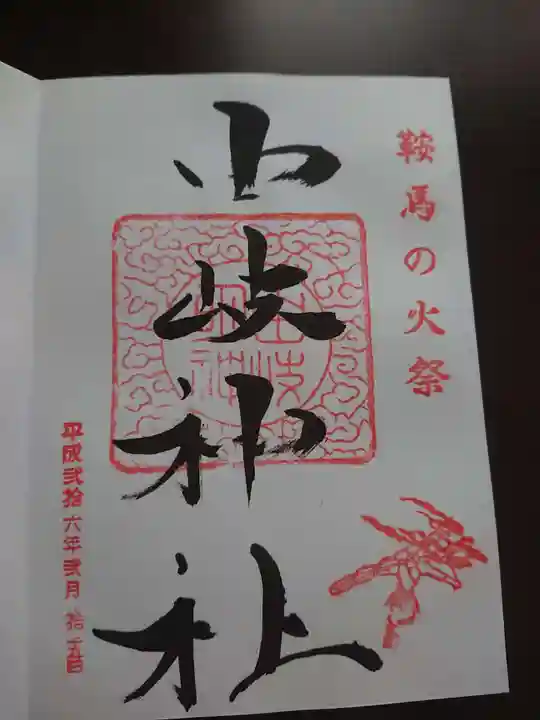 鞍馬の火祭
由岐神社
平成弐拾六年弐月 拾五日